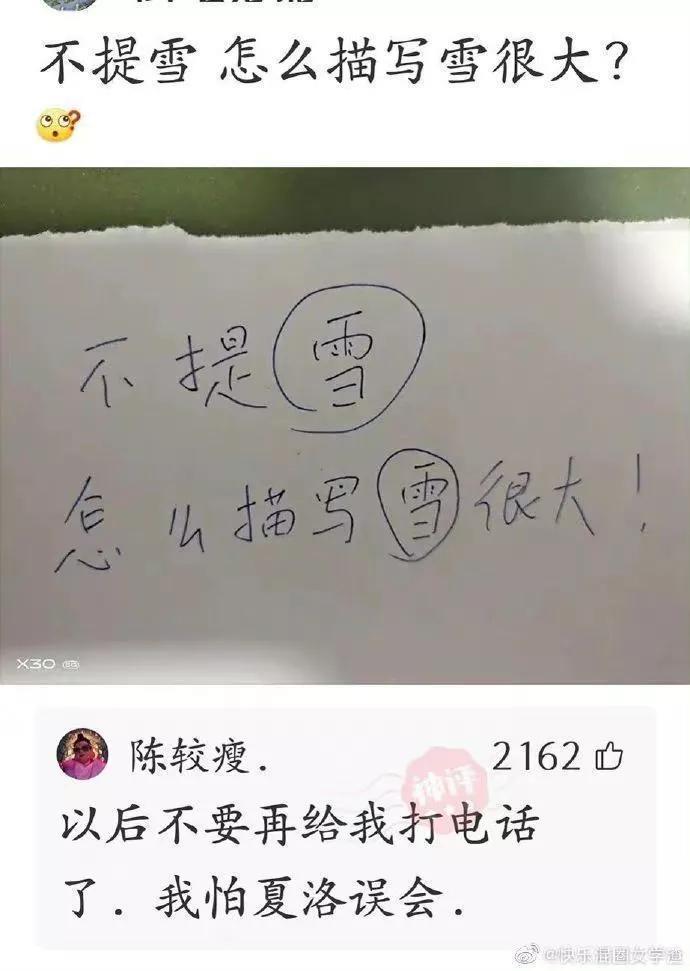 不提雪 怎么描写雪很大?
不提雪
怎么描写雪很大!
X30 5G
陈较瘦.
2162
神评
以后不要再给我打电话
了. 我怕夏洛误会.
@快乐混圈女学渣